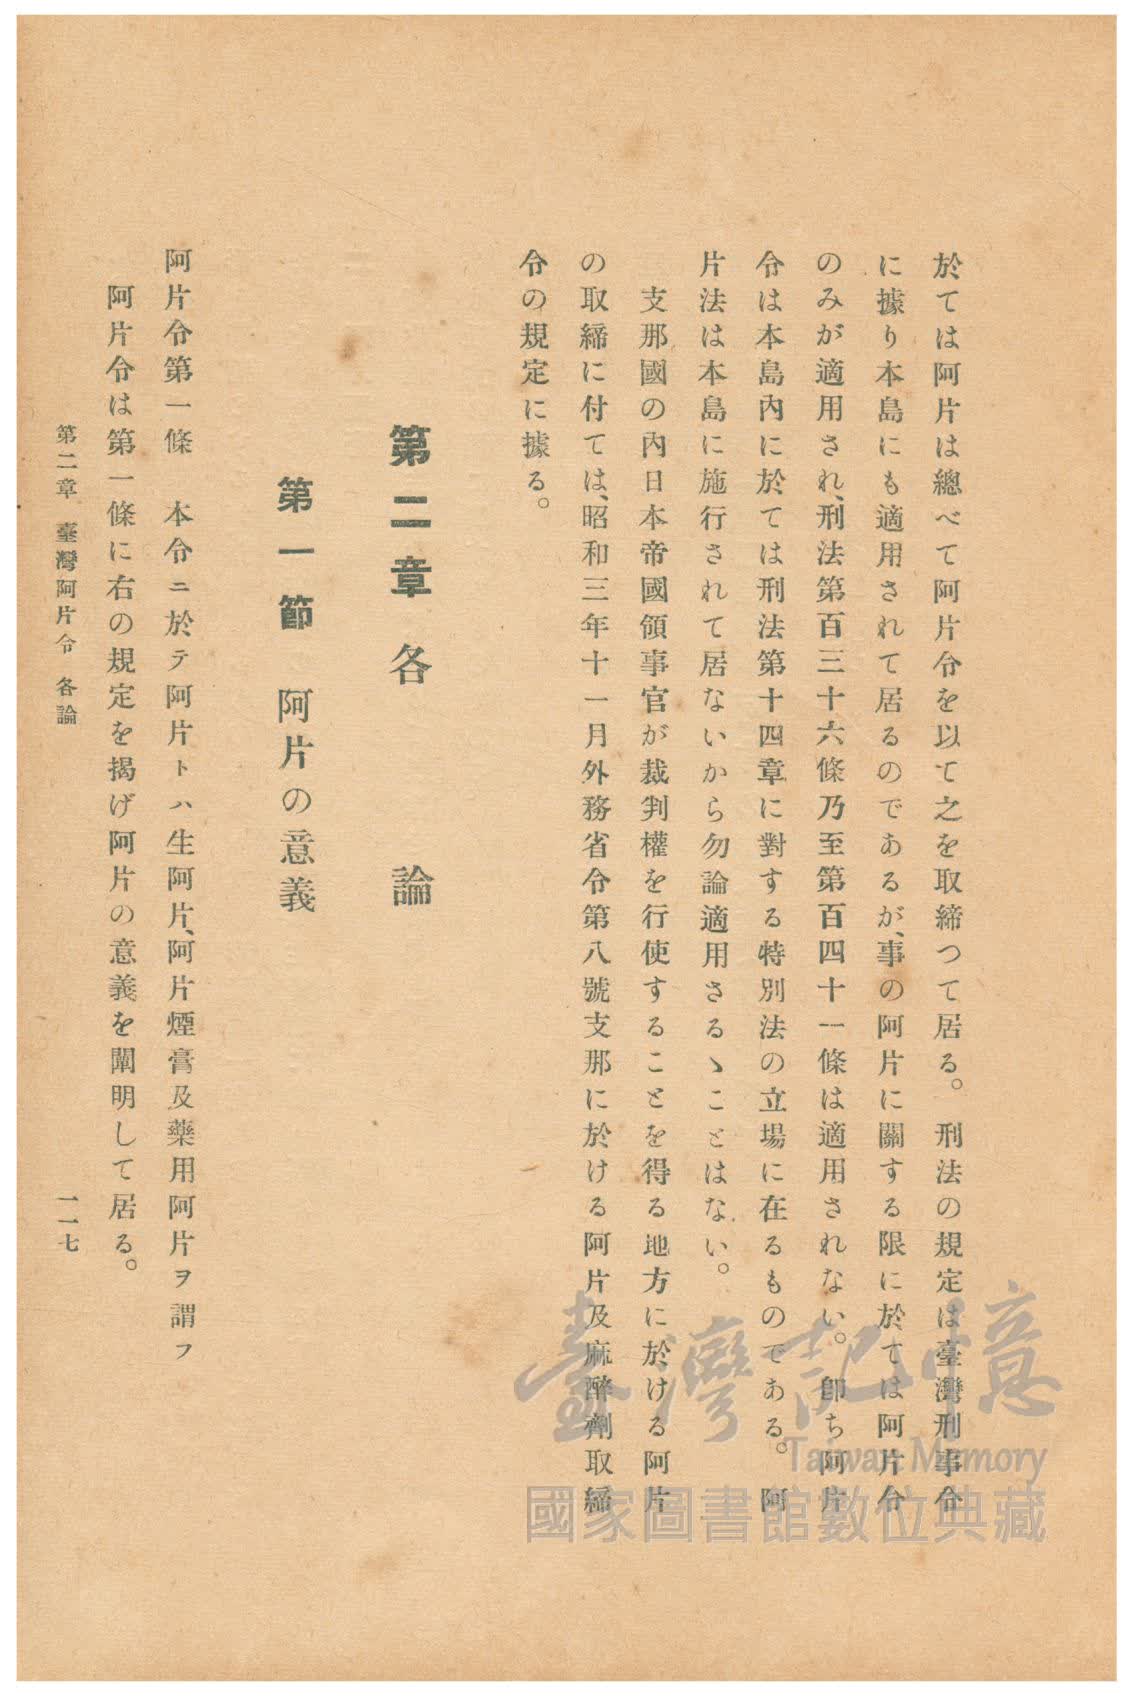 於ては阿片は總べて阿片令を以て之を取締つて居る。刑法の規定は臺灣刑事令
に據り本島にも適用されて居るのであるが、事の阿片に關する限に於ては阿片令
のみが適用され、刑法第百三十六條乃至第百四十一條は適用されない。卽ち阿片
令は本島內に於ては刑法第十四章に對する特別法の立場に在るものである。阿
片法は本島に施行されて居ないから勿論適用さるゝことはない。
支那國の內日本帝國領事官が裁判權を行使することを得る地方に於ける阿片
の取締に付ては、昭和三年十一月外務省令第八號支那に於ける阿片及麻醉劑取締
令の規定に據る。
第二章 各論
第一節 阿片の意義
阿片令第一條 本令ニ於テ阿片トハ生阿片、阿片煙膏及藥用阿片ヲ謂フ
阿片令は第一條に右の規定を揭げ阿片の意義を闡明して居る。
第二章 臺灣阿片令 各論
一一七
臺灣記憶
Taiwan Memory
國家圖書館數位典藏